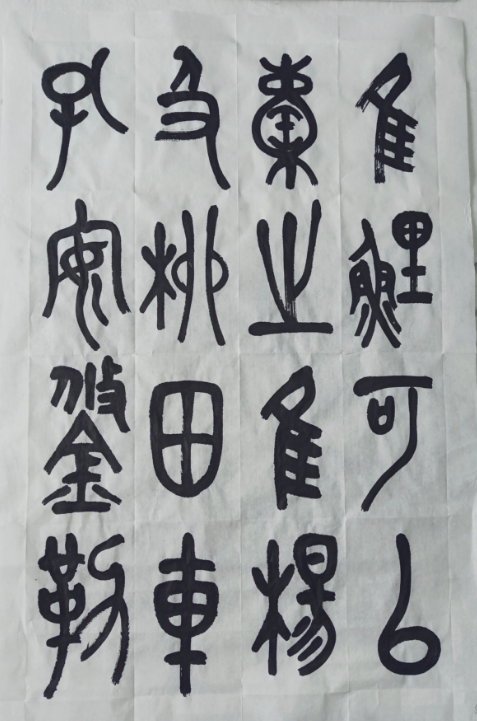 隹鯉可以
橐之隹楊
及柳田車
孔安鋚勒